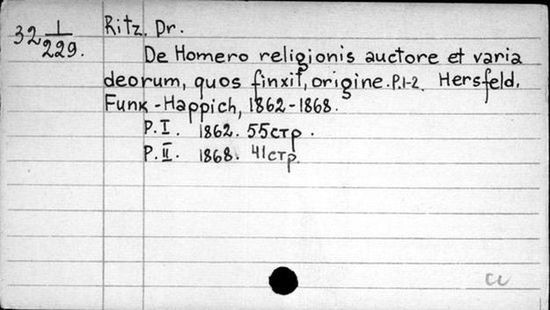 32 1/229.
Ritz. Dr.
De Homero religionis auctore et varia
deorum, quos finxit, origine. P.1-2. Hersfeld.
Funk-Happich, 1862-1868.
P.I. 1862. 55стр.
P.II. 1868. 41стр.